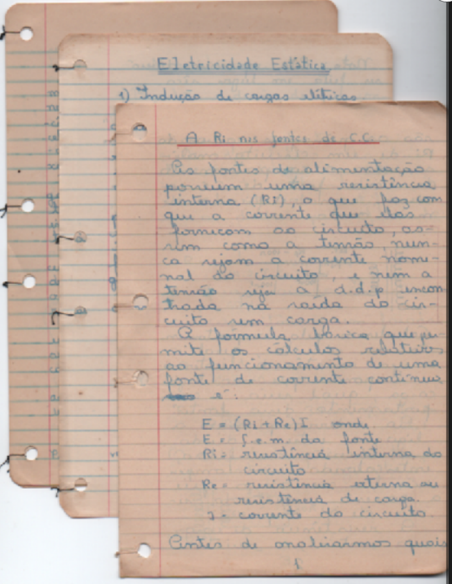 Eletricidade Estática
1) Indução de cargas elétricas
A Ri nas fontes de C.C.
As fontes de alimentação
possuem uma resistência
interna (Ri), o que faz com
que a corrente que elas
fornecem ao circuito, as-
sim como a tensão, nun-
ca sejam a corrente nomi-
nal do circuito, e nem a
tensão seja a d.d.p encon
trada na saída do cir-
cuito sem carga.
A formula básica que per
mite os cálculos relativos
ao funcionamento de uma
fonte de corrente contínua
é:
E = (Ri + Re)I onde
E = f.e.m. da fonte
Ri = resistência interna do
circuito
Re = resistência externa ou
resistência de carga
I = corrente do circuito
Antes de analisarmos quais
1